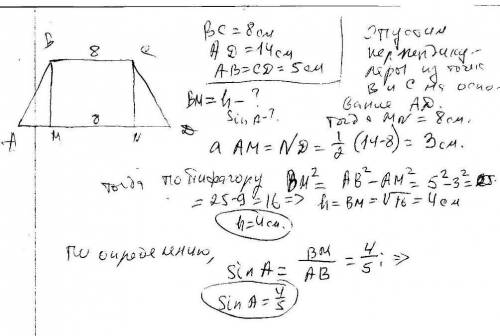 B 8 C
A M 8 N D
BC = 8 см
AD = 14 см
AB = CD = 5 см
BM = h - ?
Sin A - ?
Опустим
перпендику-
ляры из точек
B и C на осно-
вание AD.
Тогда MN = 8 см.
а AM = ND = 1/2 (14-8) = 3 см.
Тогда по Пифагору BM² = AB² - AM² = 5² - 3² =
= 25 - 9 = 16 => h = BM = √16 = 4 см
h = 4 см.
По определению,
Sin A = BM/AB = 4/5 ; =>
Sin A = 4/5